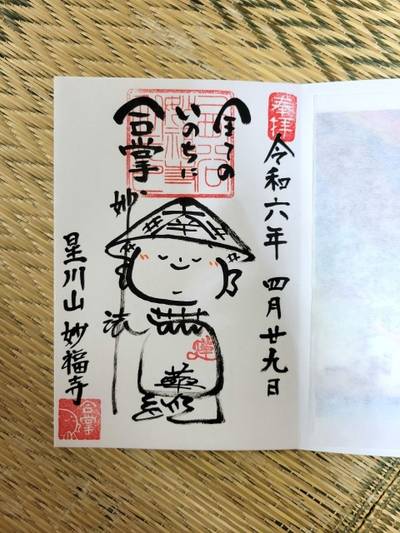 奉拝
令和六年 四月廿九日
全ての
いのちに
合掌
妙
法
華
経
星川山 妙福寺
合掌